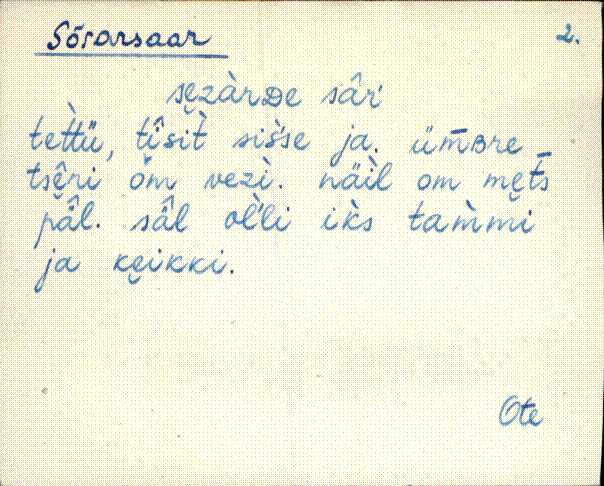 Sõsarsaar
2.
sȩzàrᴅe sâr'
tet̀tü, tî̮sit̀ siśse ja. üm̄ʙre
tsȩ̂ri õm vezì. näìl om mȩt̄s
pä̂l. sâl ol̀'li ik̀s tam̀mi
ja kȩikki.
Ote